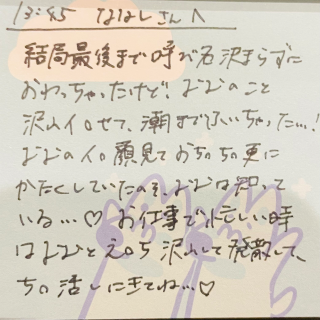 13:45 ななしさんへ
結局最後まで呼び名決まらずに
おわっちゃったけど! ななのこと
沢山イロせて、潮までふいちゃった…!
ななのイロ顔見ておちロちロ更に
かたくしていたのを、ななは知って
いる…♡ お仕事で忙しい時
はななとえロち沢山して発散して、
ちロ活しにきてね…♡